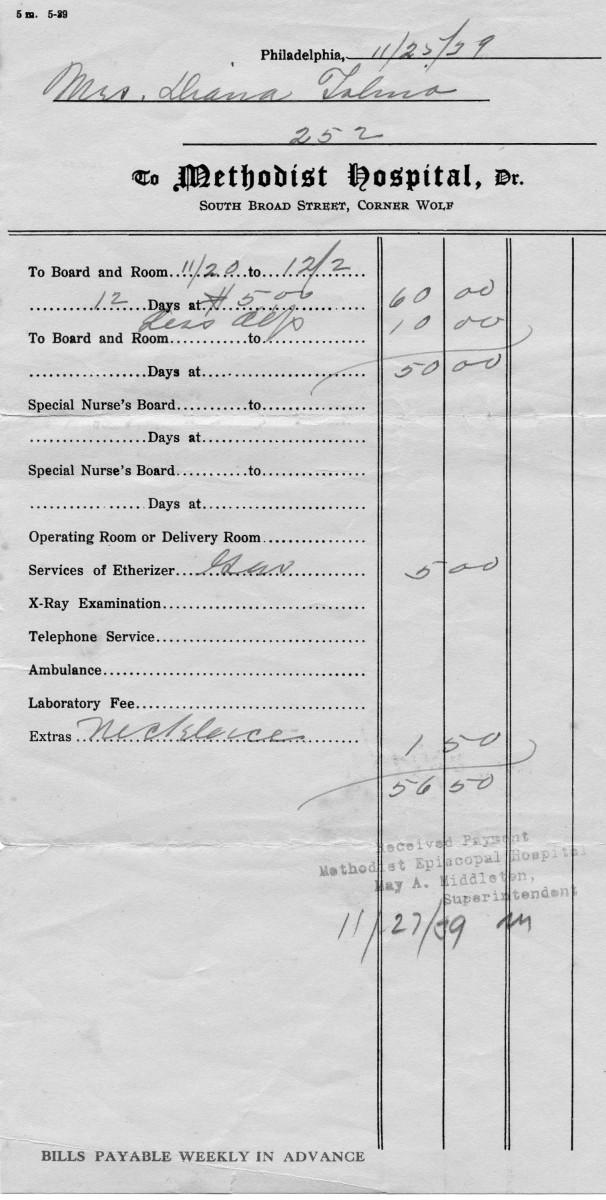 5 m. 5-39
Philadelphia, 11/25/39
Mrs. Diana Tolmo
252
To Methodist Hospital, Dr.
South Broad Street, Corner Wolf
To Board and Room 11/20 to 12/2
12 Days at $5.00 60 00
Less 10 00
To Board and Room to
Days at 50 00
Special Nurse's Board to
Days at
Special Nurse's Board to
Days at
Operating Room or Delivery Room
Services of Etherizer Gas 5 00
X-Ray Examination
Telephone Service
Ambulance
Laboratory Fee
Extras Necklace 1 50
56 50
Received Payment
Methodist Episcopal Hospital
May A. Middleton,
Superintendent
11/27/39 m
BILLS PAYABLE WEEKLY IN ADVANCE